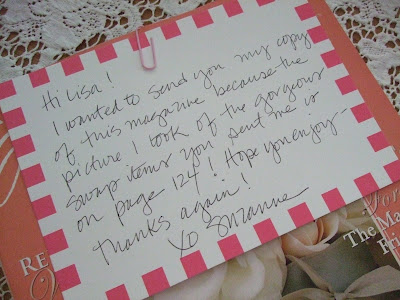 Hi Lisa!
I wanted to send you my copy
of this magazine because the
picture I took of the gorgeous
swap items you sent me is
on page 124! Hope you enjoy-
thanks again!
XO Suzanne
RE
For
The Ma
Fri